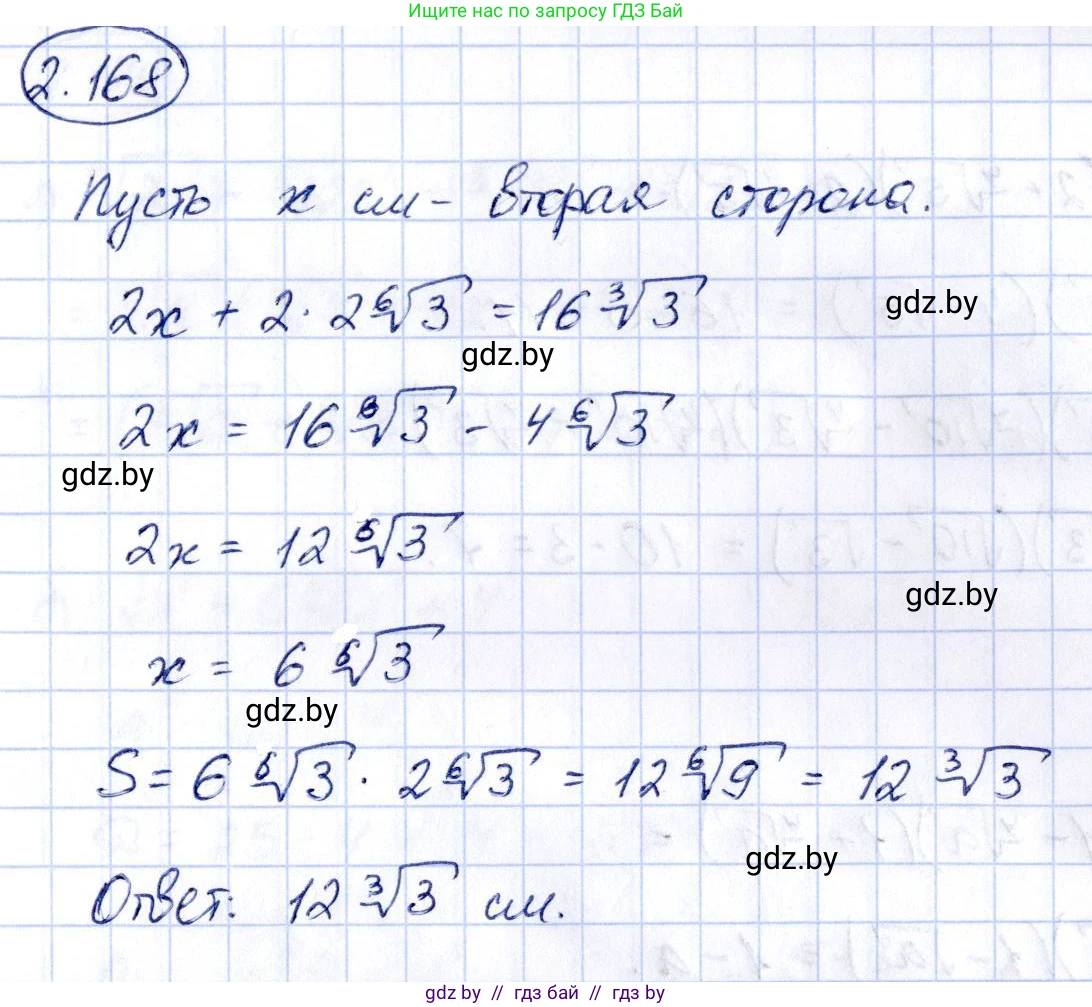 Ищите нас по запросу ГДЗ Бай
2.168
Пусть x см - вторая сторона.
2x + 2 · 2⁶√3 = 16 ³√3
gdz.by
gdz.by
2x = 16 ⁶√3 - 4 ⁶√3
gdz.by
2x = 12 ⁶√3
gdz.by
x = 6 ⁶√3
gdz.by
S = 6 ⁶√3 · 2 ⁶√3 = 12 ⁶√9 = 12 ³√3
gdz.by
Ответ: 12 ³√3 см.
gdz.by // гдз бай // гдз by